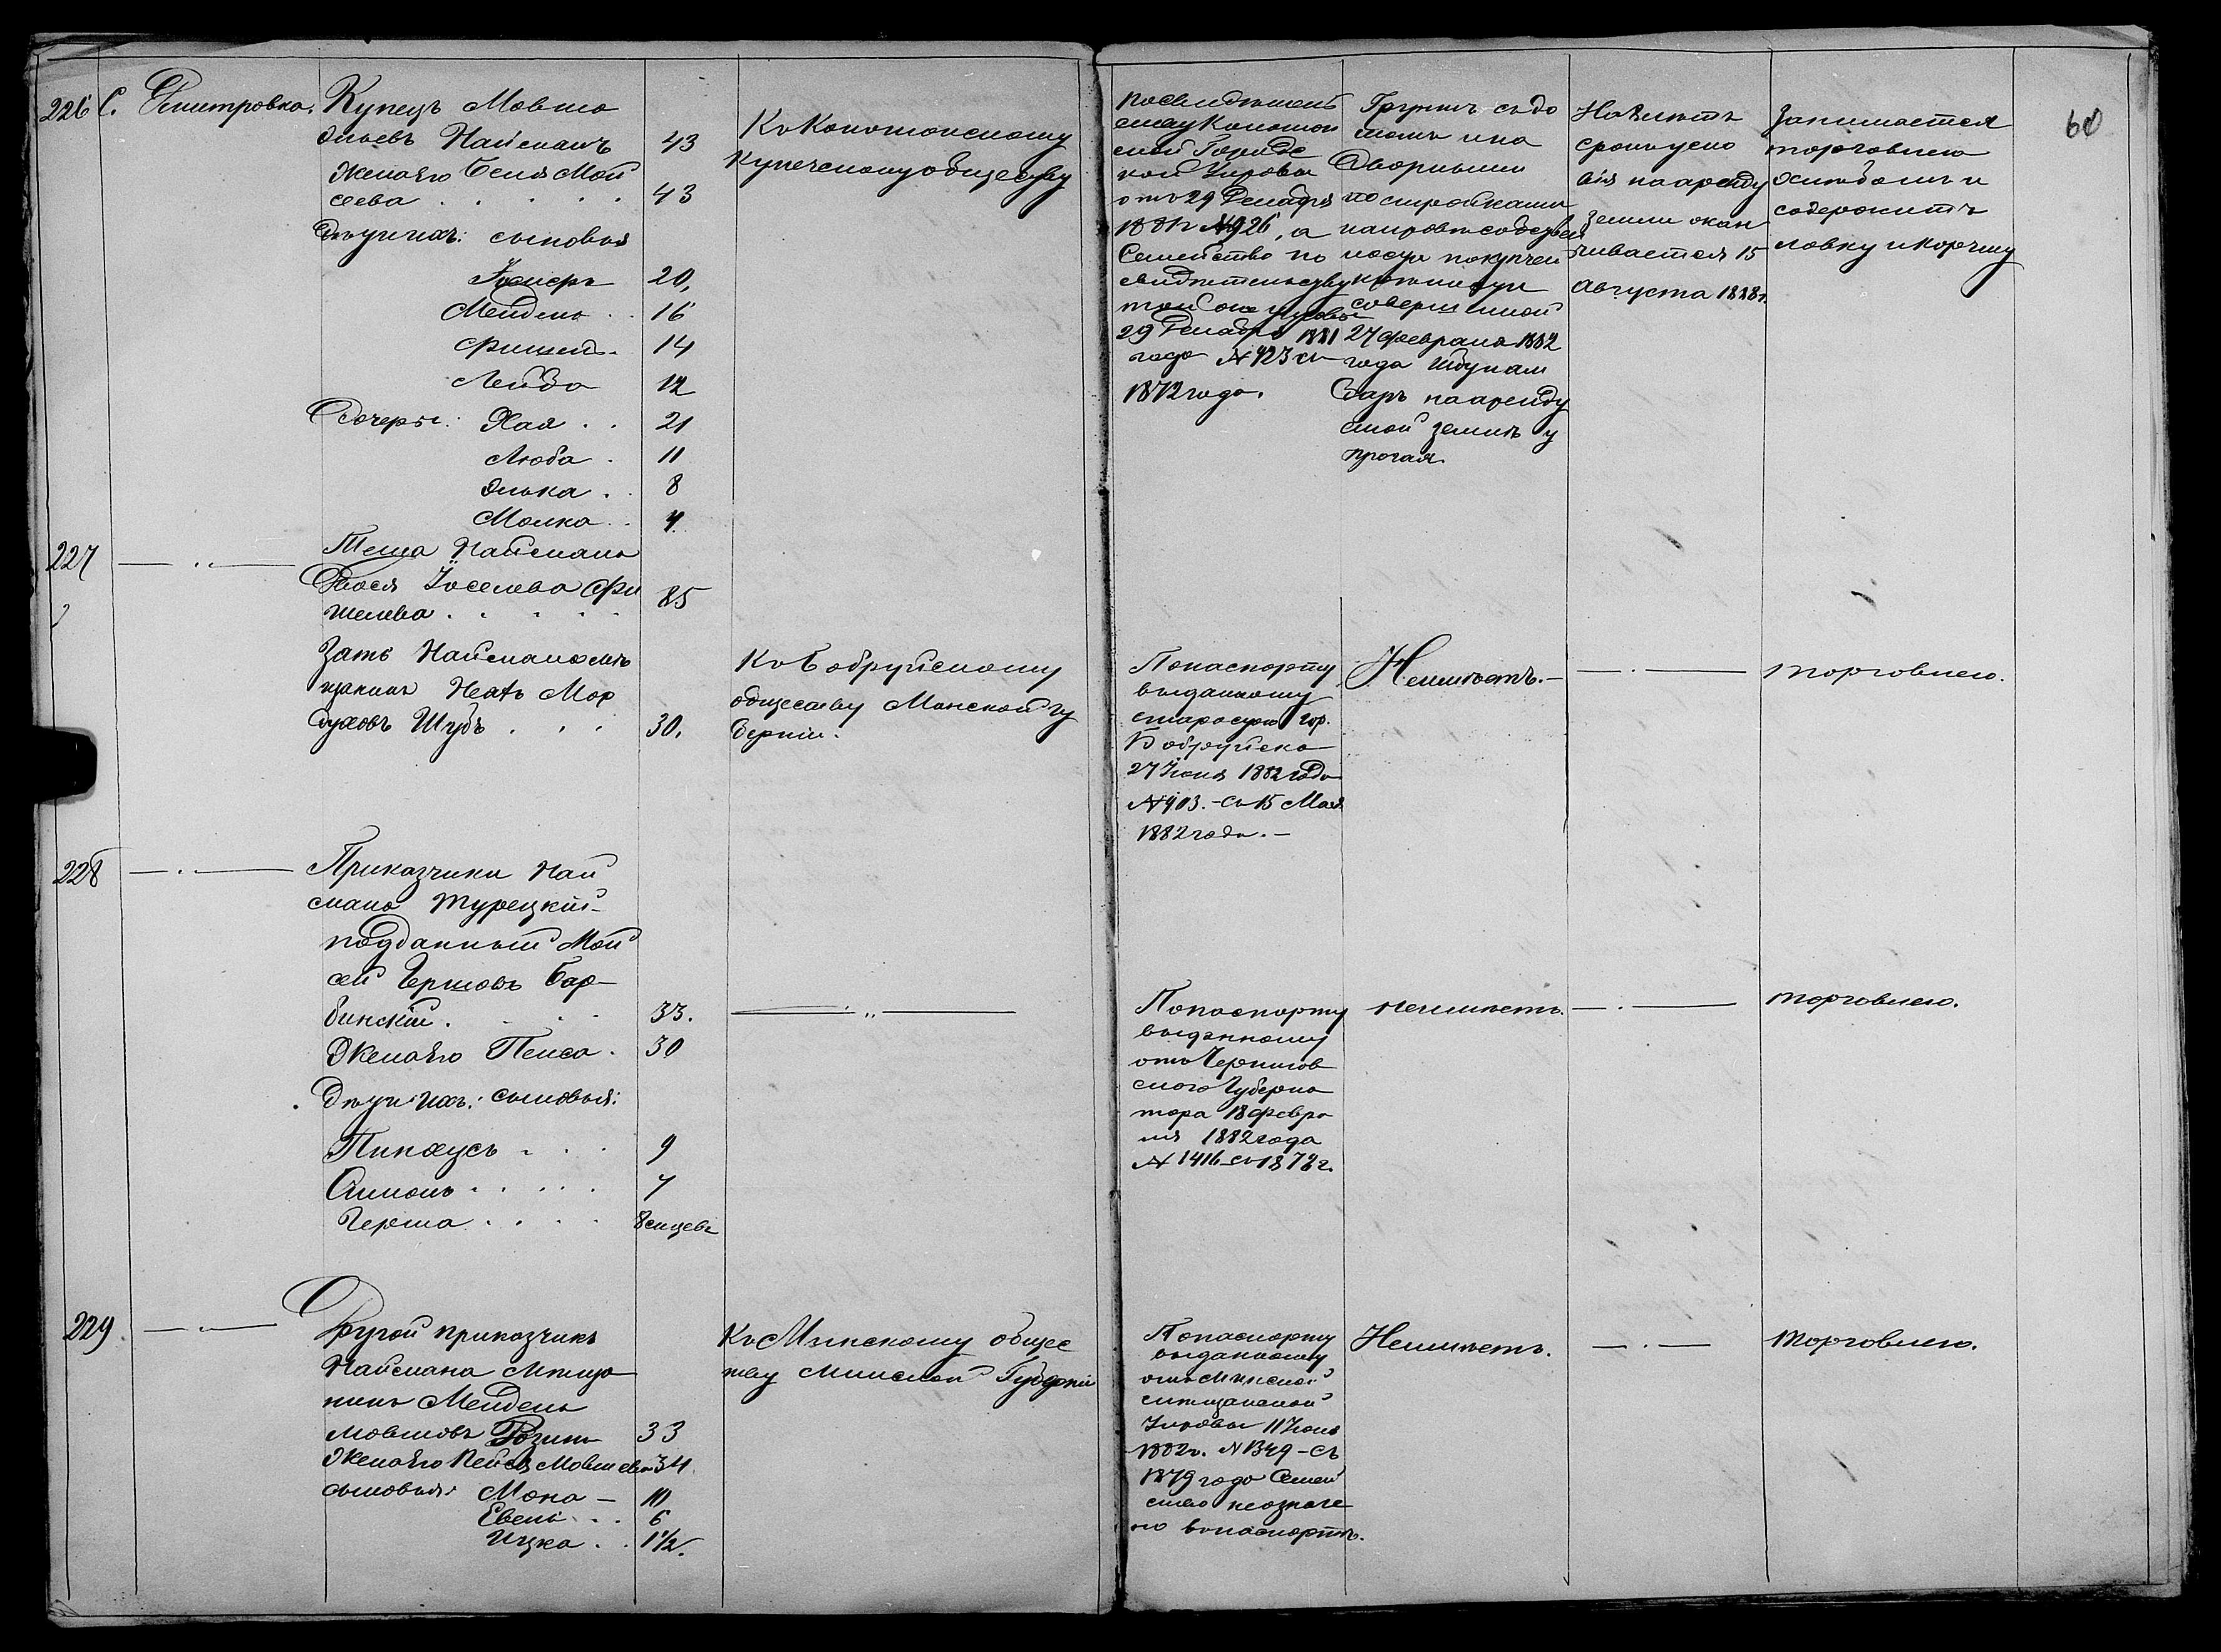 226 С. Дмитровка. Купецъ Мовша
Эльевъ Найсманъ 43
Жена его Бейля Мой
сеева 43
Дѣти ихъ: сыновья
Іосифъ 20,
Мендель 16
Фишель 14
Лейба 12
Дочеры: Хая 21
Люба 11
Элька 8
Малка 4.
Къ Конотопскому
Купеческому обществу
По свидѣтель
ству Конотоп
ской Городс
кой Управы
отъ 29 Декабря
1881 г. № 926, а
Семейство по
свидѣтельству
той же управы
29 Декабря 1881
года № 423 съ
1872 года.
Грунтъ съ до
момъ и на
Дворными
постройками
крѣпости
совершенной
27 февраля 1882
года
на аренду
мой землѣ у
На 8 лѣтъ
срокъ усло
вія на аренду
земли окан
чивается 15
Августа 1888 г.
Занимается
торговлею
хлѣбомъ и
содержитъ
лавку и корчму
60
227 — " —
Теща Найсмана
Двося Іоселева Фи
шелева 85
Зять Найсмана мѣ
щанинъ Неахъ Мор
духовъ Шубъ 30.
Къ Бобруйскому
обществу Минской гу
берніи.
По паспорту
выданному
старостою гор.
Бобруйска
27 Іюня 1882 года
№ 903. – съ 15 Мая
1882 года. –
Неимѣетъ. –
— " —
торговлею.
228 — " —
Приказчики Най
смана Турецкій
подданный Мой
сей Гершовъ Бар-
бинскій 33.
Жена его Песа 30
Дѣти ихъ: сыновья:
Пинхусъ 9
Симонъ 7
Герша 8 мѣсяцевъ
— " —
По паспорту
выданному
отъ Чернигов
скаго Губерна
тора 18 февра
ля 1882 года
№ 1416 – съ 1878 г.
неимѣетъ.
— " —
торговлею.
229. — " —
Другой приказчикъ
Найсмана Мѣща
нинъ Мендель
Мовшовъ Розинъ 33
Жена его Пейся Мовшева 34.
сыновья: Мона – 10
Евель 6
Ицка 1½.
Къ Минскому общес
тву Минской Губерніи
По паспорту
выданному
отъ Минской
мѣщанской
Управы 11 Іюня
1882 г. № 1349 – съ
1879 года Семей
ство неозначе
но въ паспортѣ.
Неимѣетъ.
— " —
торговлею.